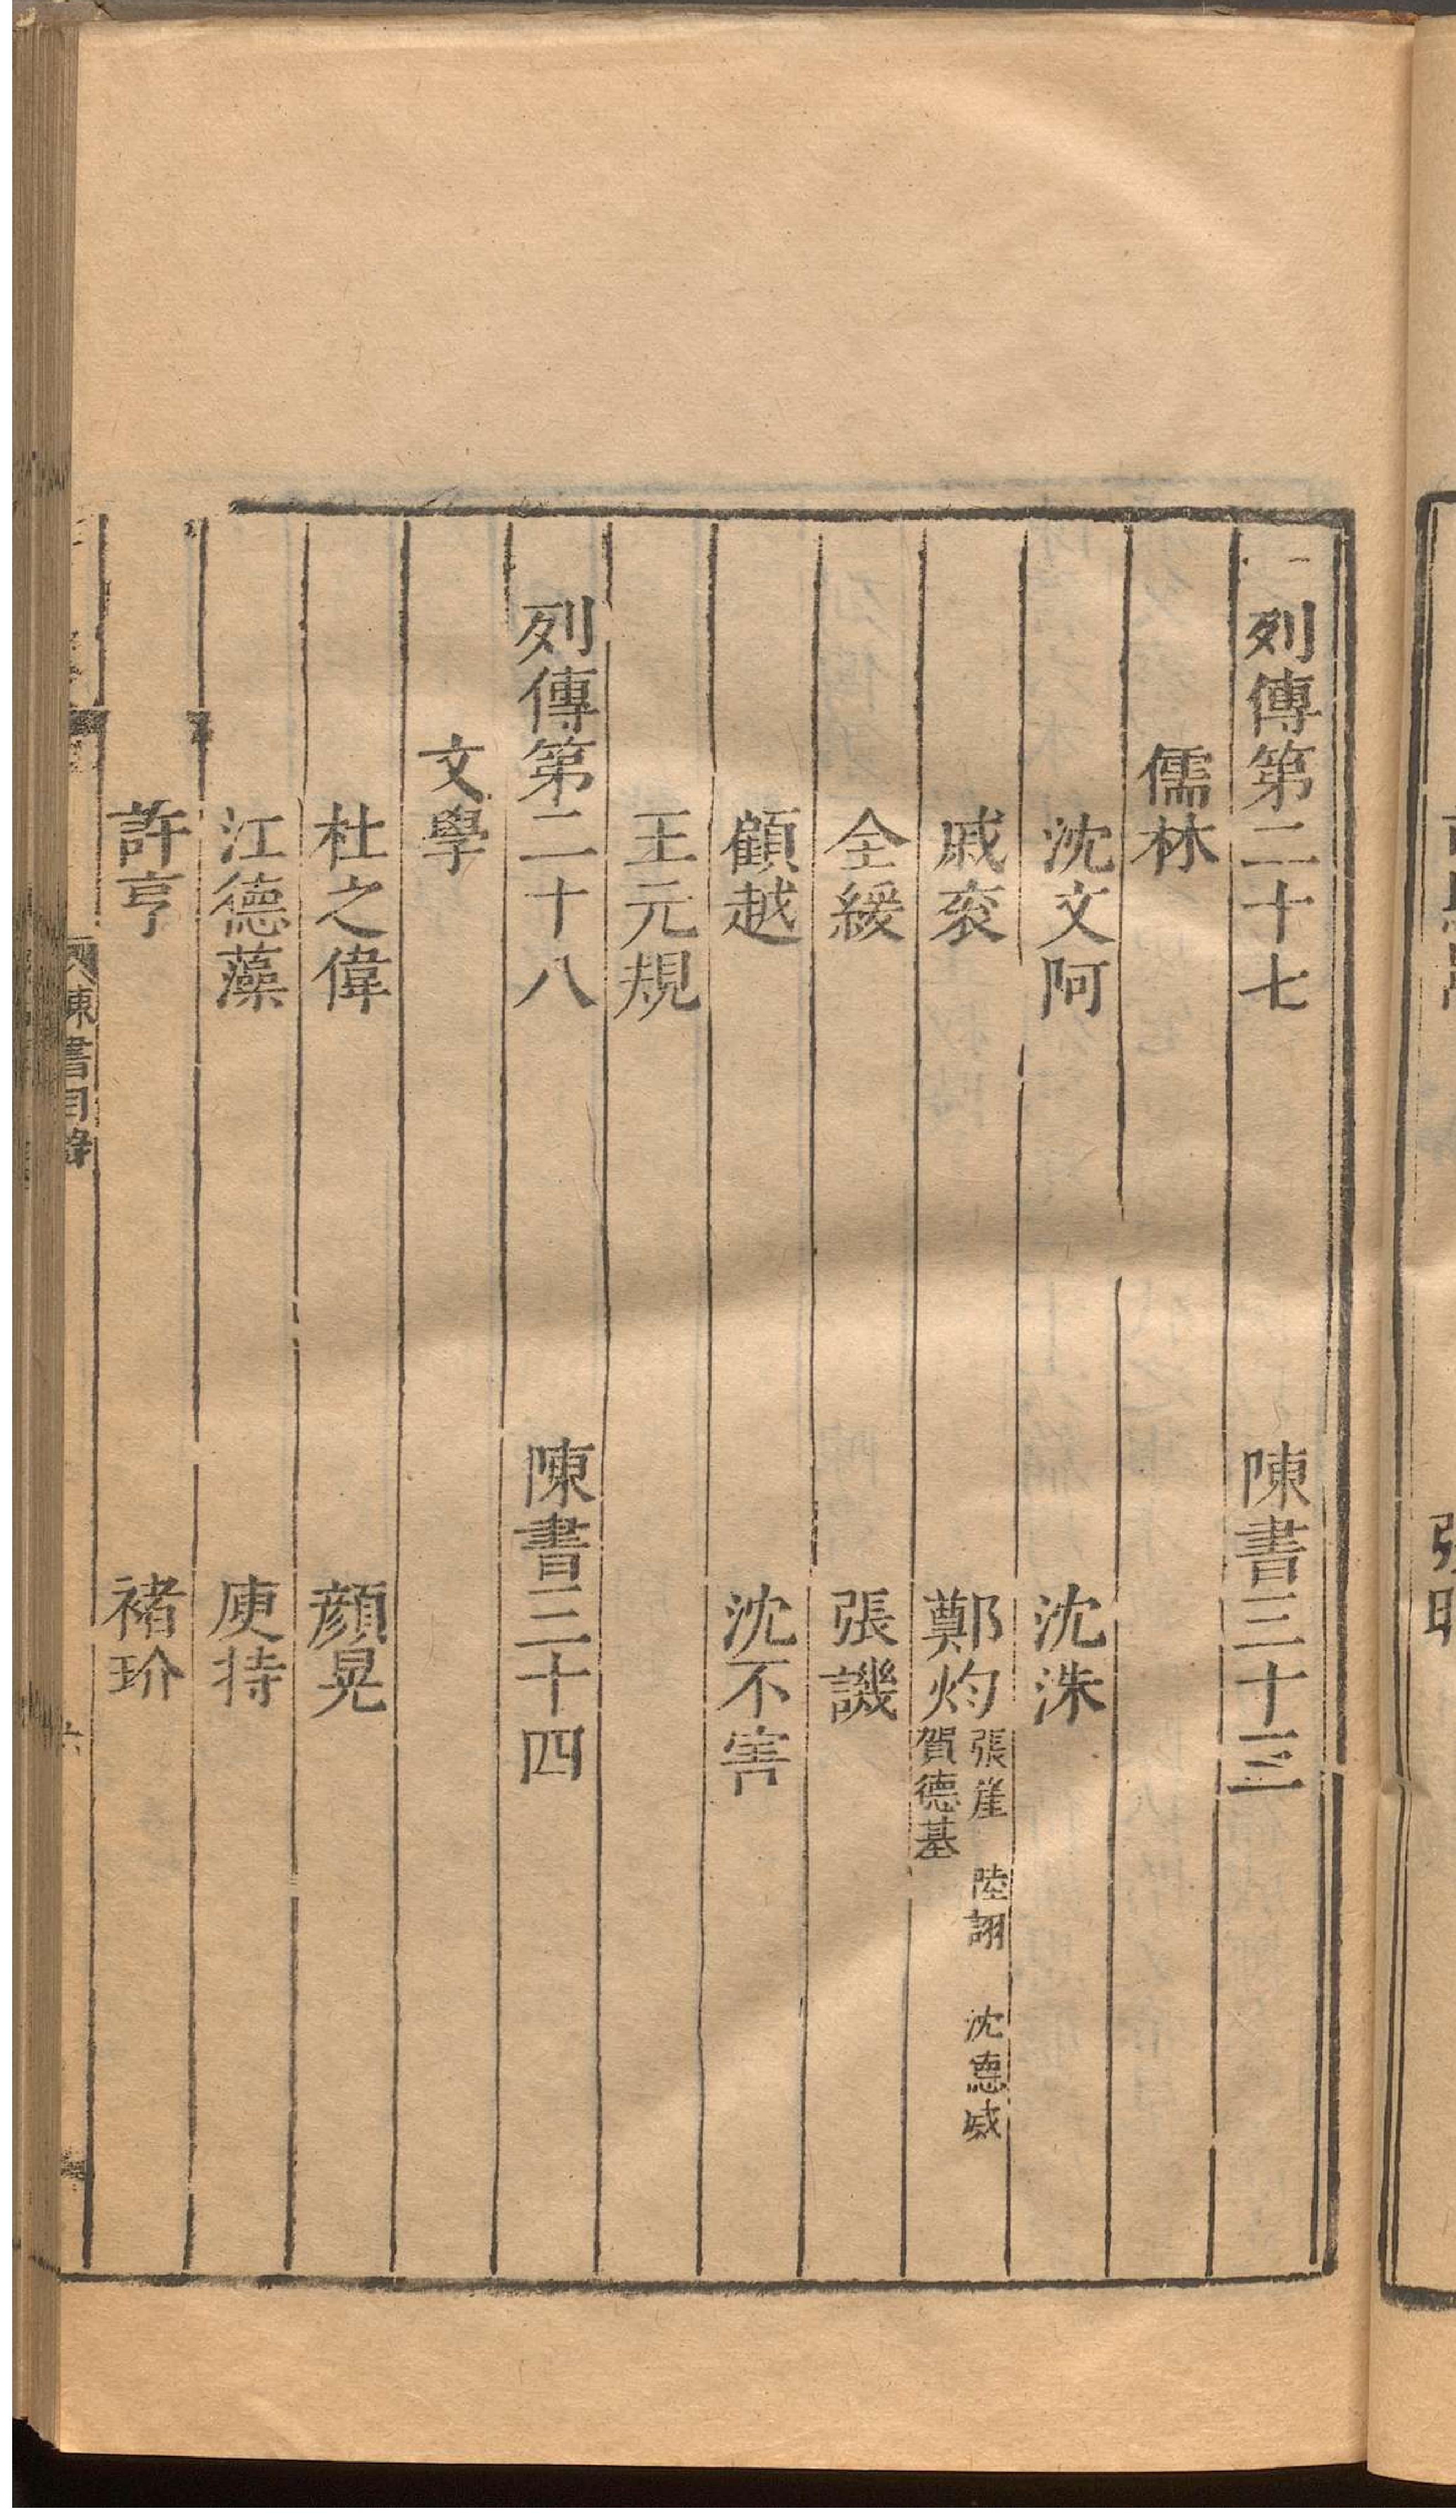 列傳第二十七　陳書三十三
儒林
沈文阿　沈洙
戚衮　鄭灼 張崖　陸詡　沈德威　賀德基
全緩　張譏
顧越　沈不害
王元規
列傳第二十八　陳書三十四
文學
杜之偉　顏晃
江德藻　庾持
許亨　褚玠
陳書目錄
六